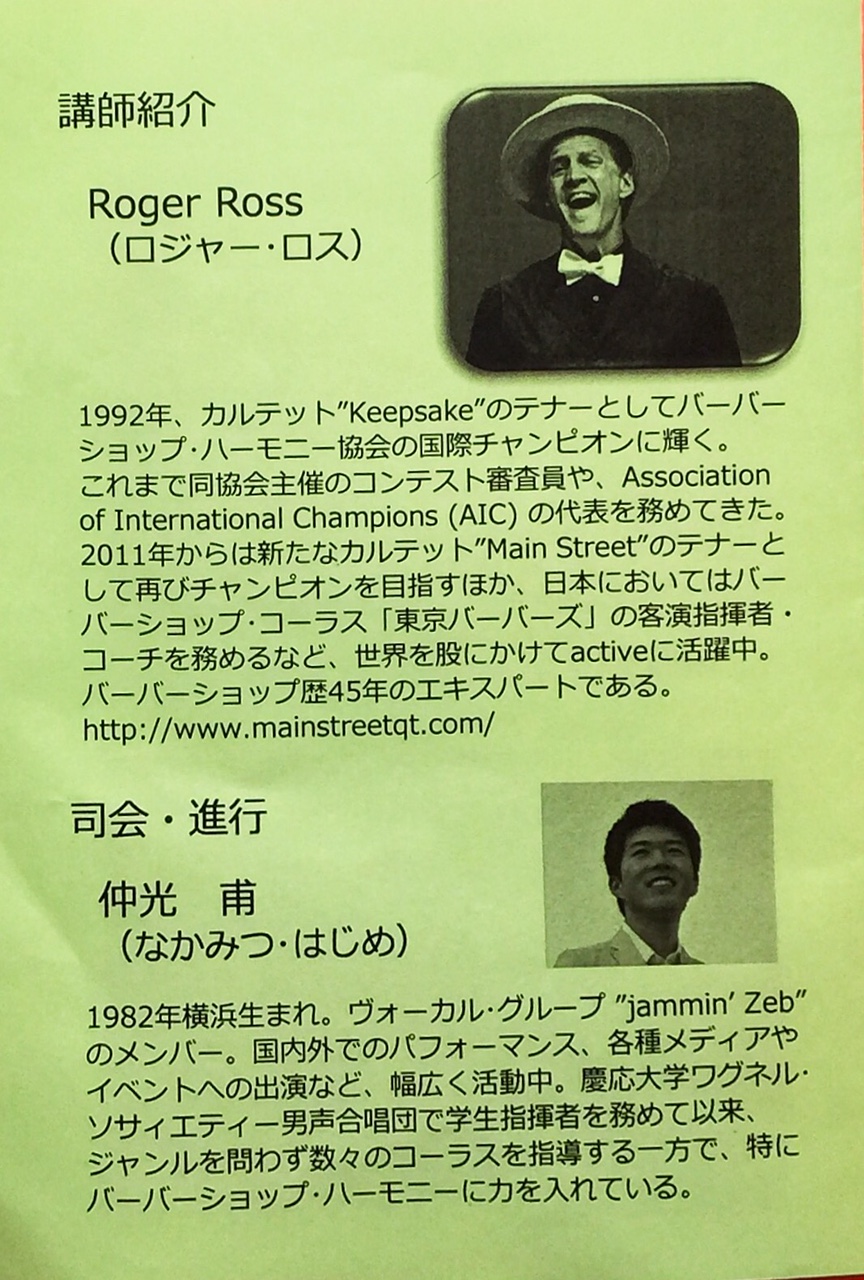 講師紹介
Roger Ross
（ロジャー・ロス）
1992年、カルテット”Keepsake”のテナーとしてバーバー
ショップ・ハーモニー協会の国際チャンピオンに輝く。
これまで同協会主催のコンテスト審査員や、Association
of International Champions (AIC) の代表を務めてきた。
2011年からは新たなカルテット”Main Street”のテナーと
して再びチャンピオンを目指すほか、日本においてはバー
バーショップ・コーラス「東京バーバーズ」の客演指揮者・
コーチを務めるなど、世界を股にかけてactiveに活躍中。
バーバーショップ歴45年のエキスパートである。
http://www.mainstreetqt.com/
司会・進行
仲光　甫
（なかみつ・はじめ）
1982年横浜生まれ。ヴォーカル・グループ ”jammin’ Zeb”
のメンバー。国内外でのパフォーマンス、各種メディアや
イベントへの出演など、幅広く活動中。慶応大学ワグネル・
ソサィエティー男声合唱団で学生指揮者を務めて以来、
ジャンルを問わず数々のコーラスを指導する一方で、特に
バーバーショップ・ハーモニーに力を入れている。